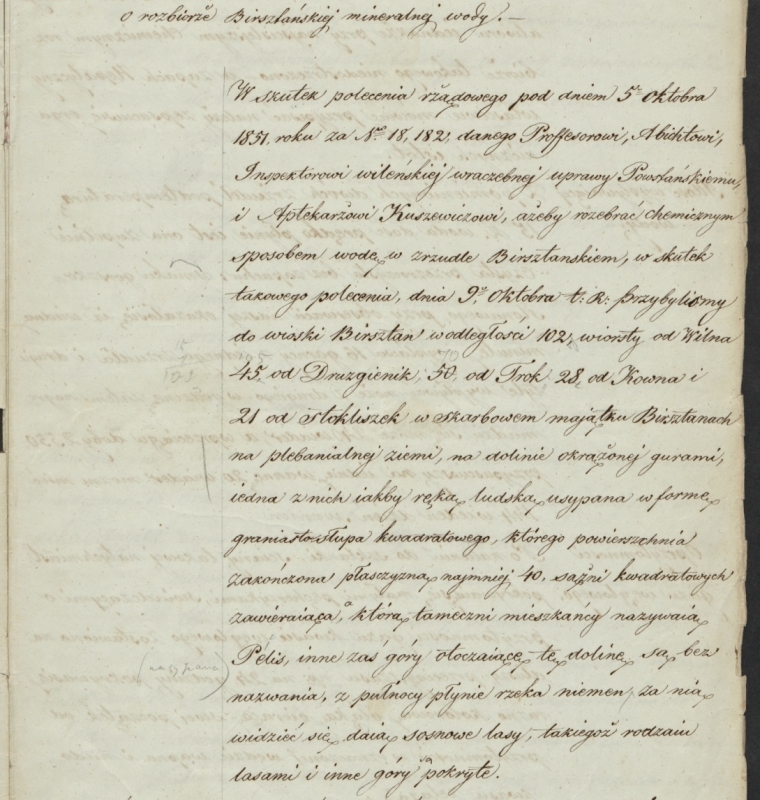 o rozbiorże Birsztańskiej mineralnej wody. —
W skutek polecenia rżądowego pod dniem 5º oktobra
1851, roku za Nº 18,182, danego Proffesorowi, Abichtowi,
Inspektorowi wileńskiej wraczebnej uprawy Powstańskiemu,
i Aptekarżowi Kuszewiczowi, ażeby rozebrać chemicznym
sposobem wodę w zrzudle Birsztanskiem, w skutek
takowego polecenia, dnia 9º oktobra t: R: przybyliśmy
do wioski Birsztan wodległości 102, wiorsty od Wilna
45, od Druzgienik, 50, od Trok 28, od Kowna i
21 od Stokliszek w skarbowem majątku Birsztanach
na plebanialnej ziemi, na dolinie okrążonej gurami,
iedna z nich iakby ręką ludską usypana w formę
graniasto-słupa kwadratowego, którego powierszchnia
zakończona płasczyzną najmniej 40, sążni kwadratowych
zawieraiąca, którą tameczni mieszkańcy nazywaią
Pelis, inne zaś góry otoczaiące tę dolinę są bez
(nasypana)
nazwania, z pułnocy płynie rzeka niemen, za nią
widzieć się daią sosnowe lasy, takiegoż rodzaiu
lasami i inne góry pokryte.